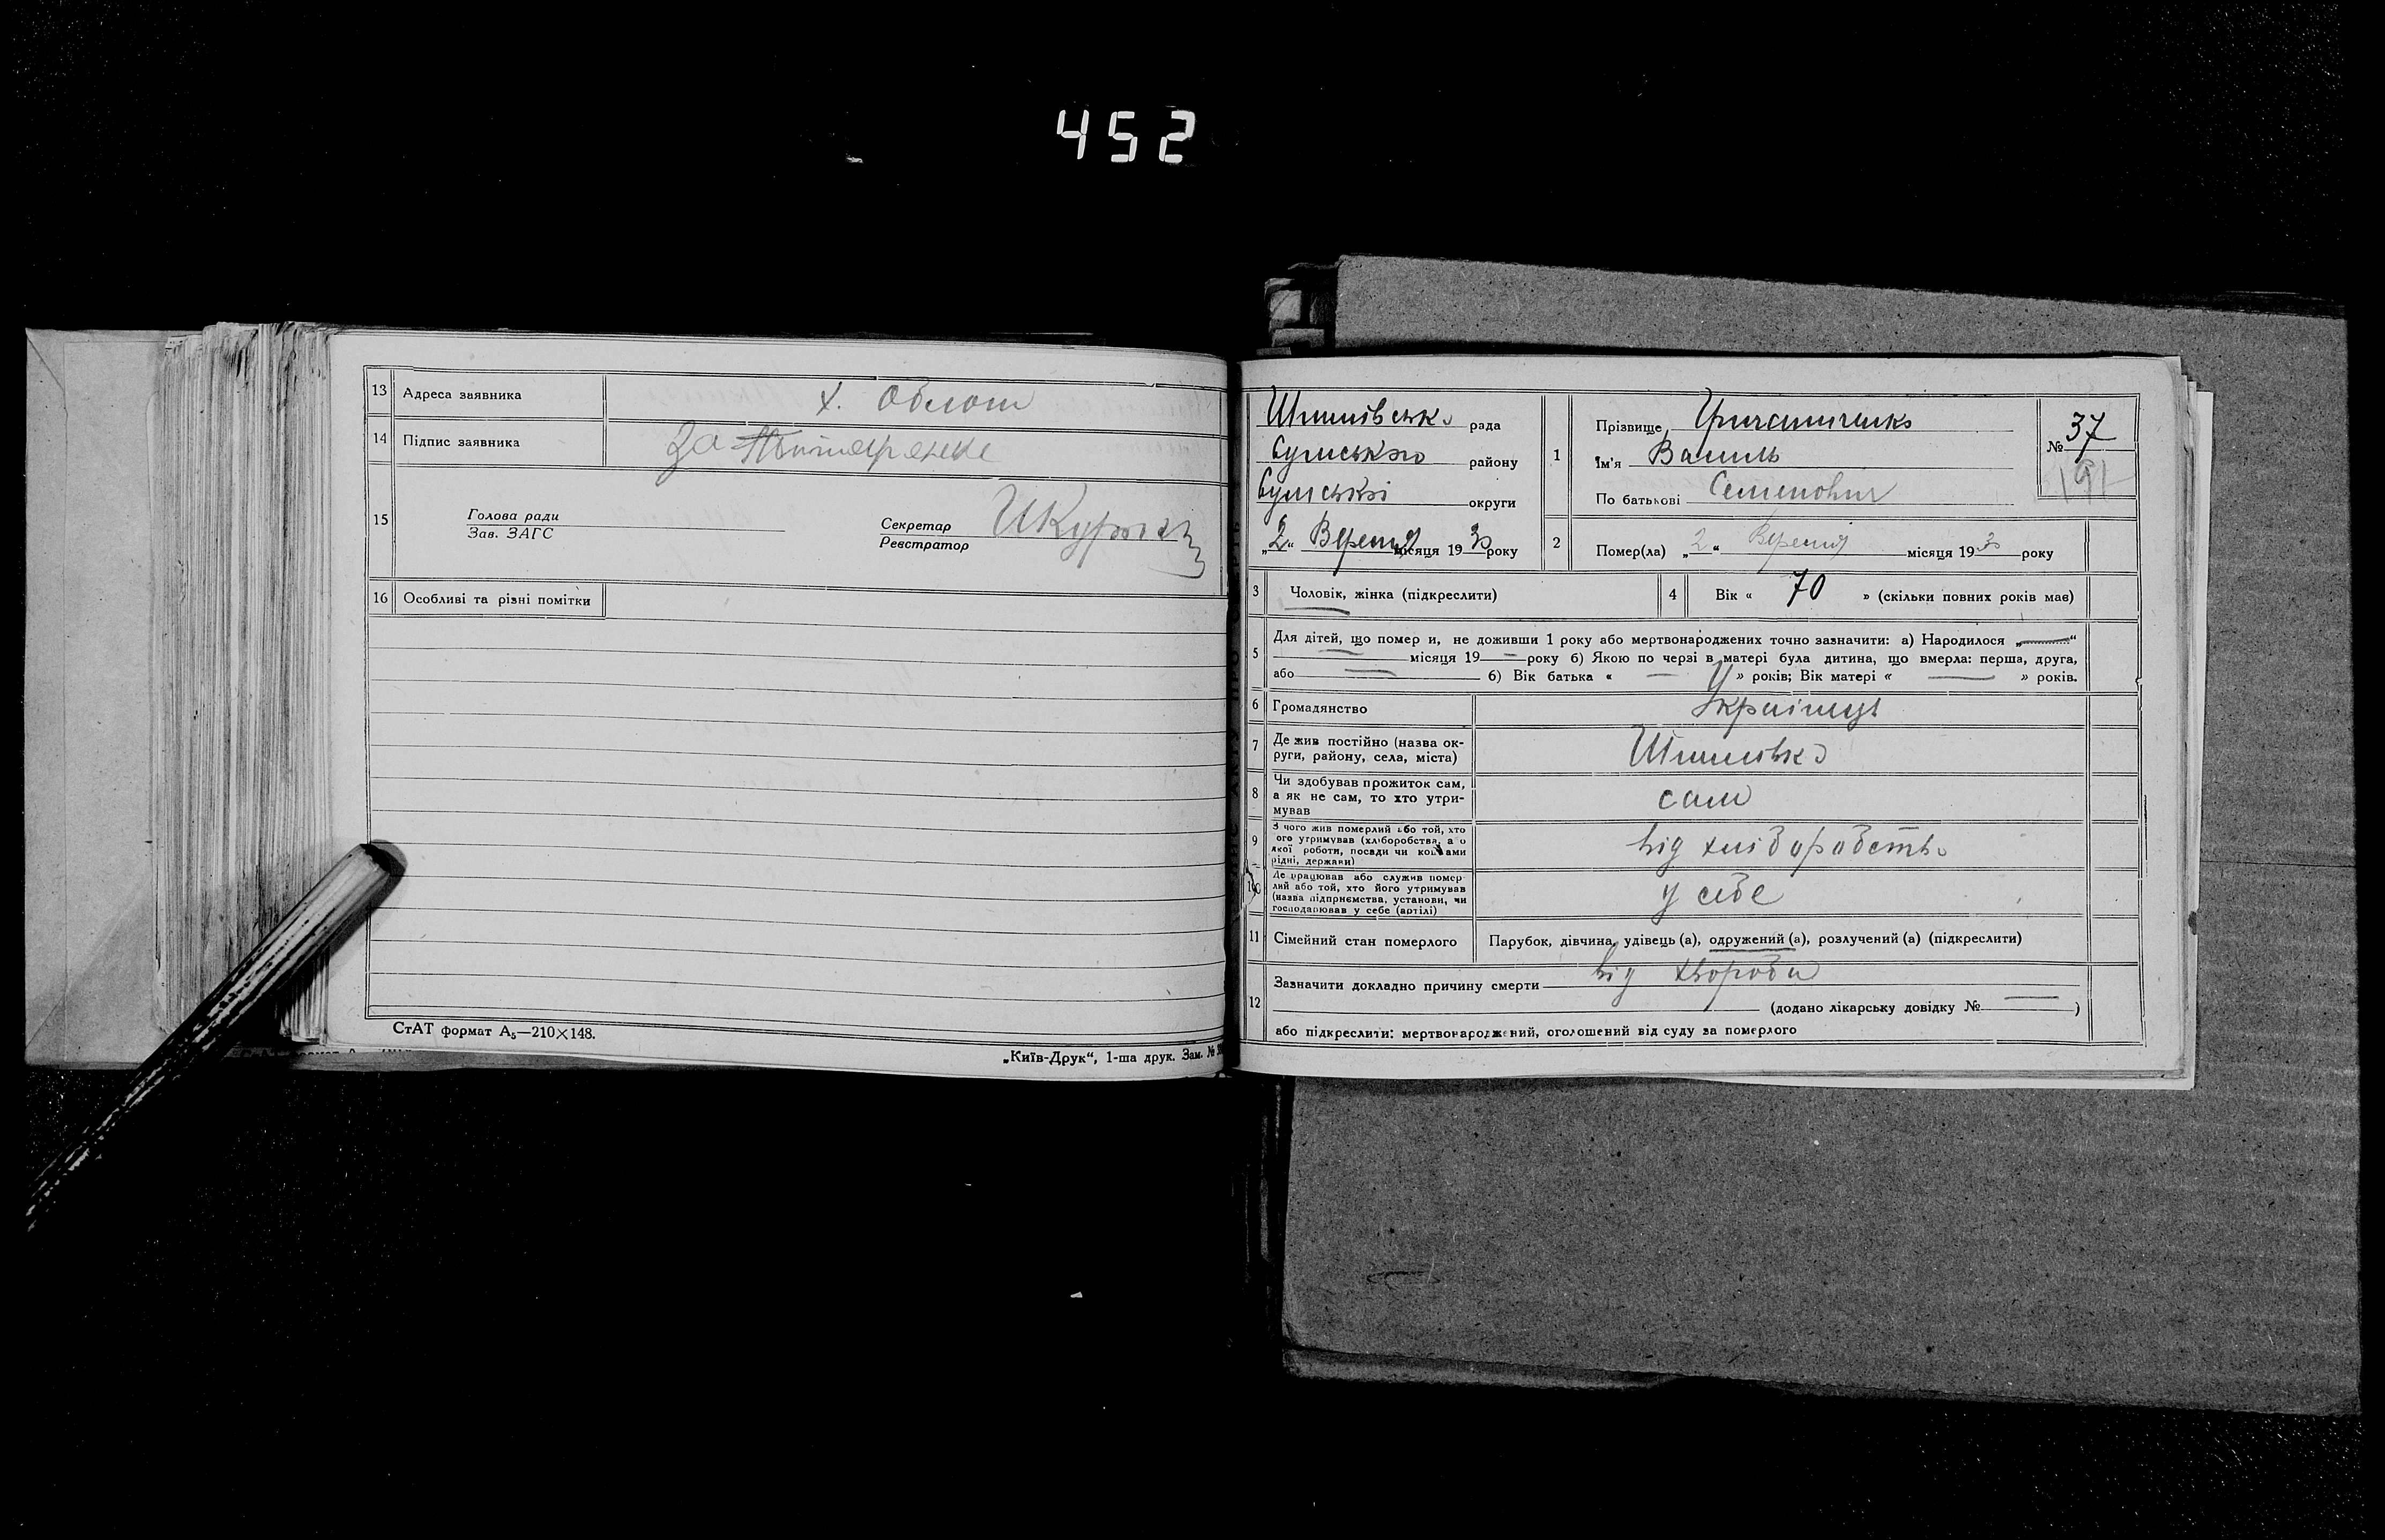 452
13 Адреса заявника х. Облоги
14 Підпис заявника За
15 Голова ради
Зав. ЗАГС
Секретар
Реєстратор
16 Особливі та різні помітки
СтАТ формат А₅—210×148.
„Київ-Друк“, 1-ша друк. Зам. №
рада
Сумського району
Сумської округи
„2“ Вересня місяця 1930 року
1 Прізвище
Ім'я Василь
По батькові Семенович
№ 37
191
2 Помер(ла) „2“ Вересня місяця 1930 року
3 Чоловік, жінка (підкреслити)
4 Вік « 70 » (скільки повних років мав)
5 Для дітей, що помер и, не доживши 1 року або мертвонароджених точно зазначити: а) Народилося „—“
місяця 19— року б) Якою по черзі в матері була дитина, що вмерла: перша, друга,
або — б) Вік батька « — » років; Вік матері « — » років.
6 Громадянство Українець
7 Де жив постійно (назва ок-
руги, району, села, міста)
8 Чи здобував прожиток сам,
а як не сам, то хто утри-
мував
сам
9 З чого жив померлий або той, хто
ого утримував (хліборобства, а о
якої роботи, посади чи коштами
рідні, держави)
від хліборобства
10 Де працював або служив помер-
лий або той, хто його утримував
(назва підприємства, установи, чи
господарював у себе (артілі)
у себе
11 Сімейний стан померлого Парубок, дівчина, удівець (а), одружений (а), розлучений (а) (підкреслити)
12 Зазначити докладно причину смерти від хвороби
(додано лікарську довідку № — )
або підкреслити: мертвонароджений, оголошений від суду за померлого